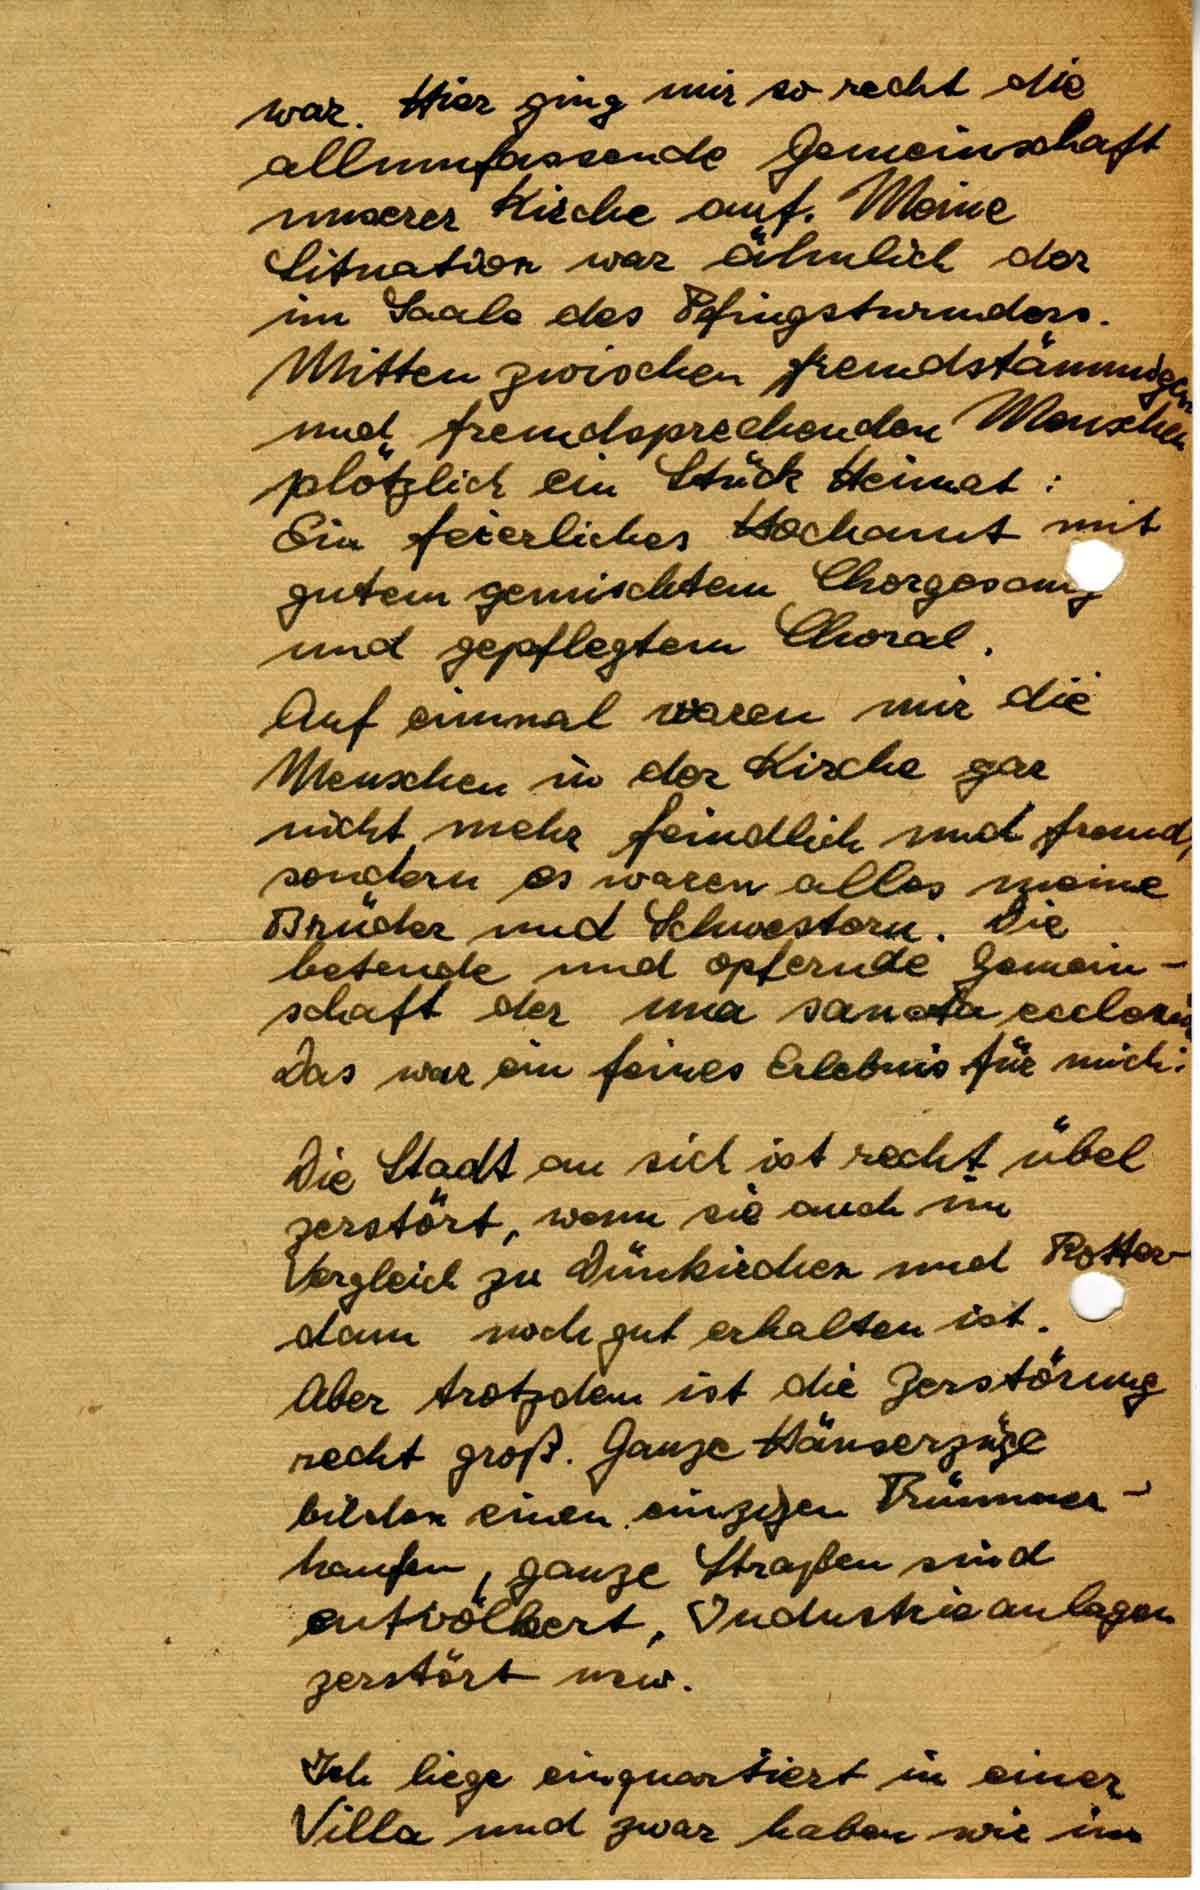 war. Hier ging mir so recht die
allumfassende Gemeinschaft
unserer Kirche auf. Meine
Situation war ähnlich der
im Saale des Pfingstwunders.
Mitten zwischen fremdstämmigen
und fremdsprechenden Menschen
plötzlich ein Stück Heimat :
Ein feierliches Hochamt mit
gutem gemischtem Chorgesang
und gepflegtem Choral.
Auf einmal waren mir die
Menschen in der Kirche gar
nicht mehr feindlich und fremd,
sondern es waren alles meine
Brüder und Schwestern. Die
betende und opfernde Gemein-
schaft der una sancta ecclesia
Das war ein feines Erlebnis für mich.
Die Stadt an sich ist recht übel
zerstört, wenn sie auch im
Vergleich zu Dünkirchen und Rotter-
dam noch gut erhalten ist.
Aber trotzdem ist die Zerstörung
recht groß. Ganze Häuserzüge
bilden einen einzigen Trümmer-
haufen, ganze Straßen sind
entvölkert, Industrieanlagen
zerstört usw.
Ich liege einquartiert in einer
Villa und zwar haben wir im